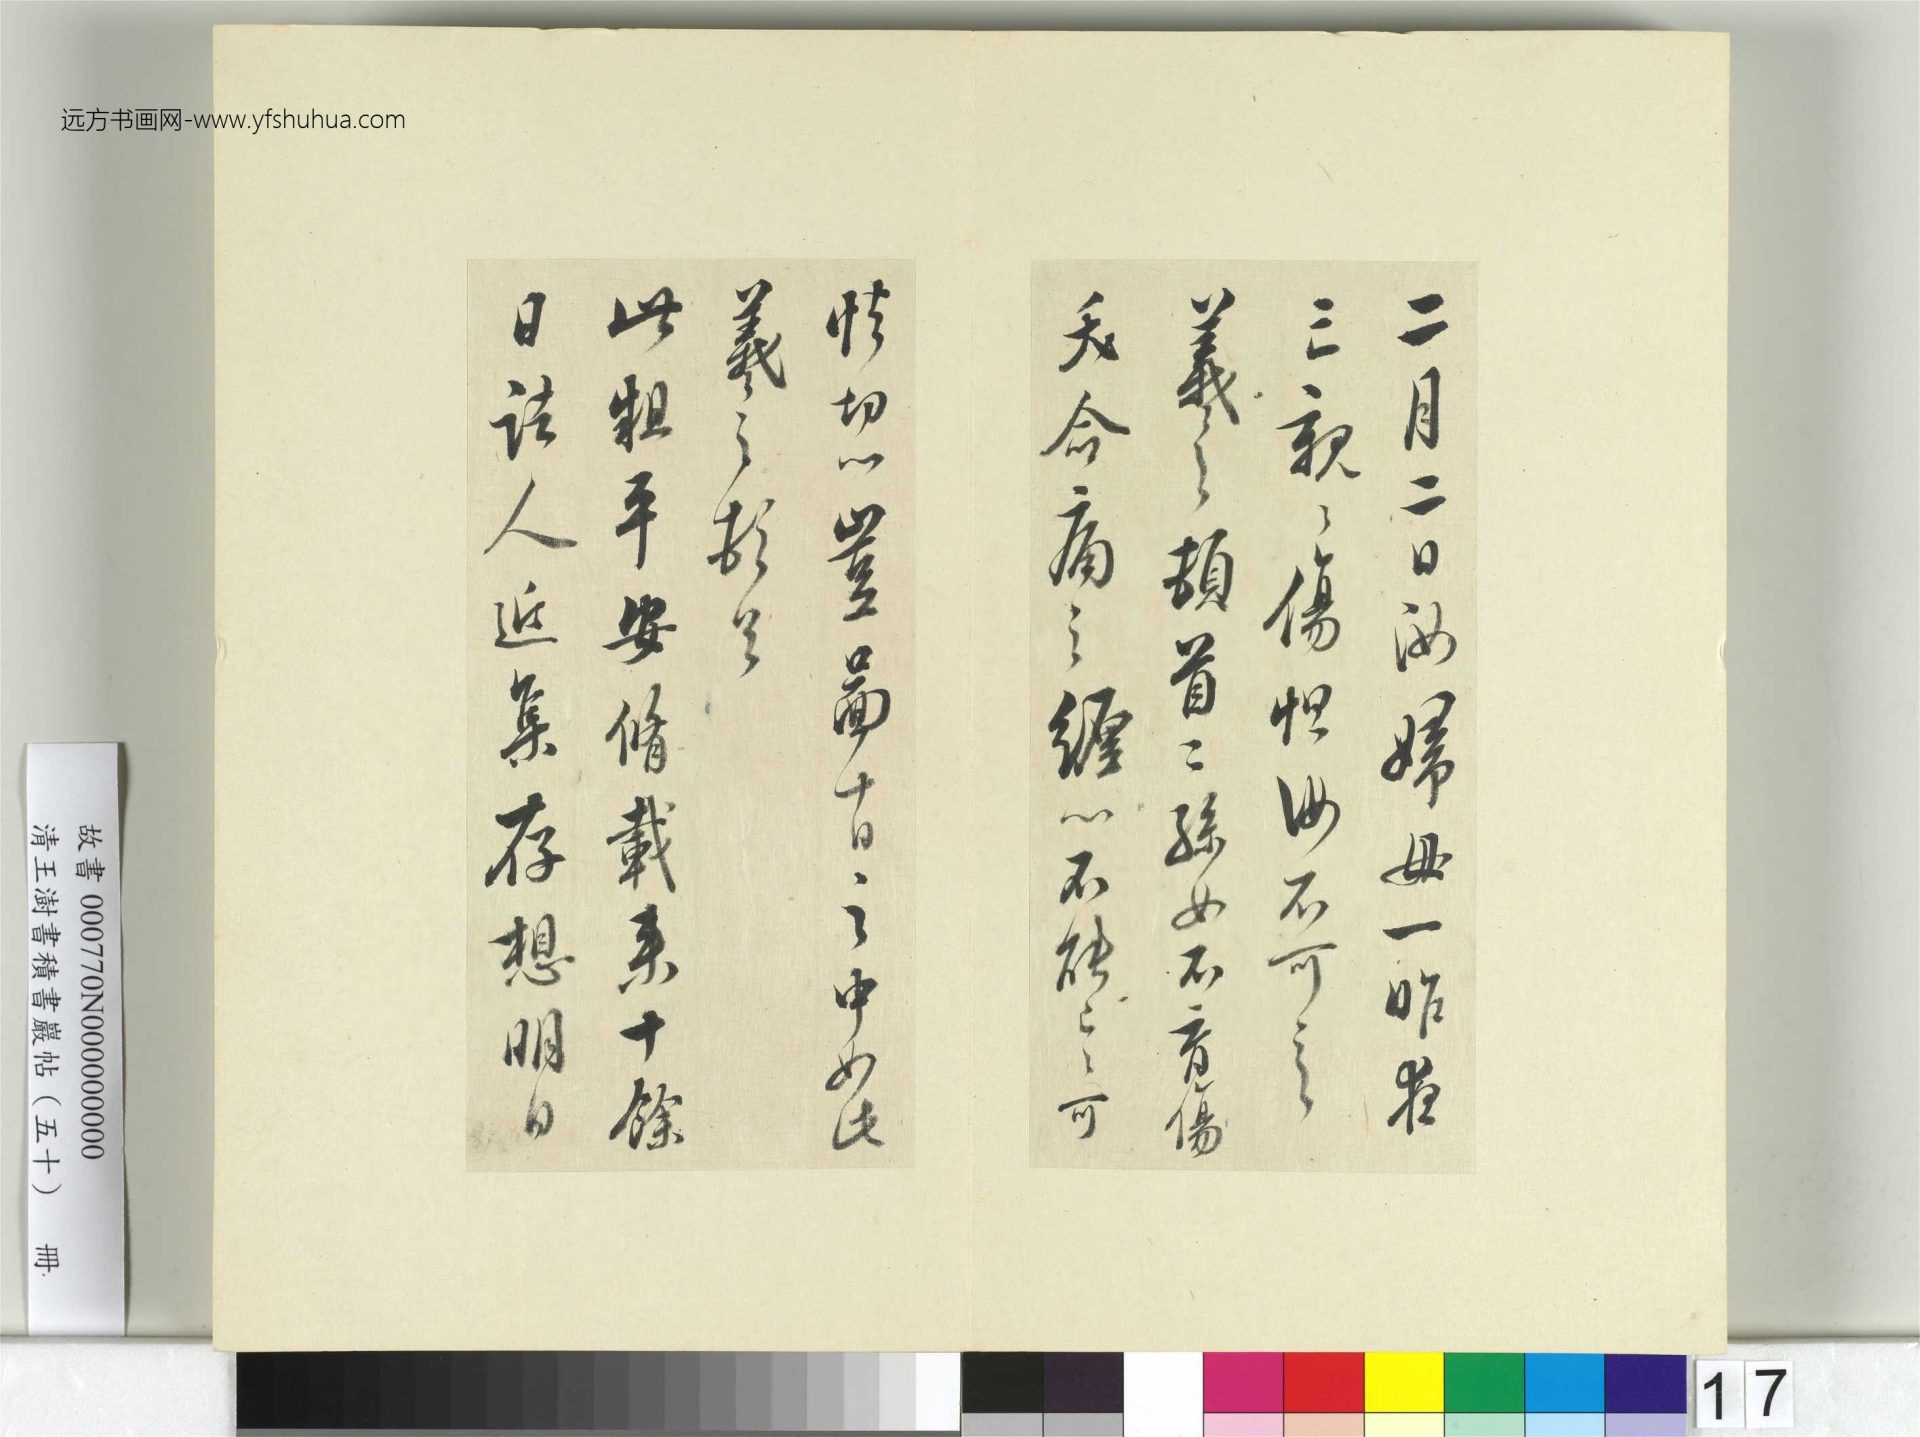 远方书画网-www.yfshuhua.com
二月二日汝婦母一昨夜
亡親々傷怛汝不可言
羲之頓首二孫女不育傷
夭命痛之纏心不能已々可
切心豈圖十日之中如此
羲之頓首
此粗平安脩載來十餘
日諸人近集存想明日
故書 000770N000000000
清王澍書積書巖帖（五十） 冊
17